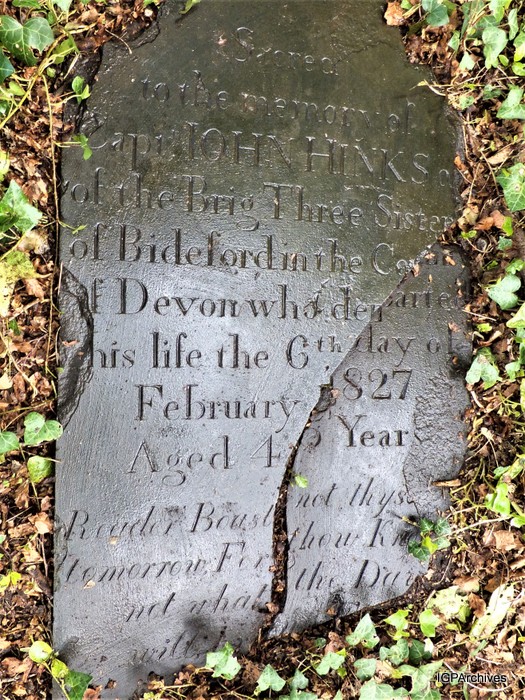 Sacred
to the memory of
Capt. JOHN HINKS
of the Brig Three Sister
of Bideford in the Co
of Devon who departed
his life the 6th day of
February 1827
Aged 4 Year
Reader Boast not thys
tomorrow For thow Kn
not what the Day
will
IGPArchives